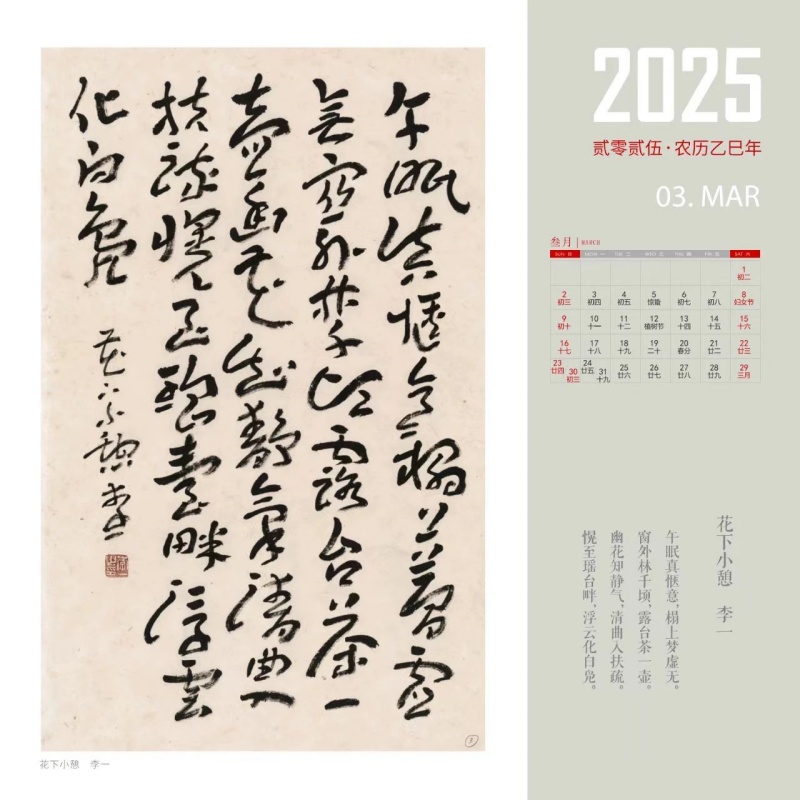 午眠真愜意榻上夢虛
無窗外林千頃露台茶一
壺幽花知靜氣清曲入
扶疏愰至瑤臺畔浮雲
化白鳧
花下小憩 李一
8
花下小憩 李一
2025
贰零贰伍·农历乙巳年
03. MAR
叁月 MARCH
SUN 日 MON 一 TUE 二 WED 三 THU 四 FRI 五 SAT 六
1
初二
2 3 4 5 6 7 8
初三 初四 初五 惊蛰 初七 初八 妇女节
9 10 11 12 13 14 15
初十 十一 十二 植树节 十四 十五 十六
16 17 18 19 20 21 22
十七 十八 十九 二十 春分 廿二 廿三
23 30 24 31 25 26 27 28 29
廿四 初三 廿五 十九 廿六 廿六 廿七 廿八 廿九 三月
花下小憩 李一
午眠真惬意,榻上梦虚无。
窗外林千顷,露台茶一壶。
幽花知静气,清曲入扶疏。
愰至瑶台畔,浮云化白凫。